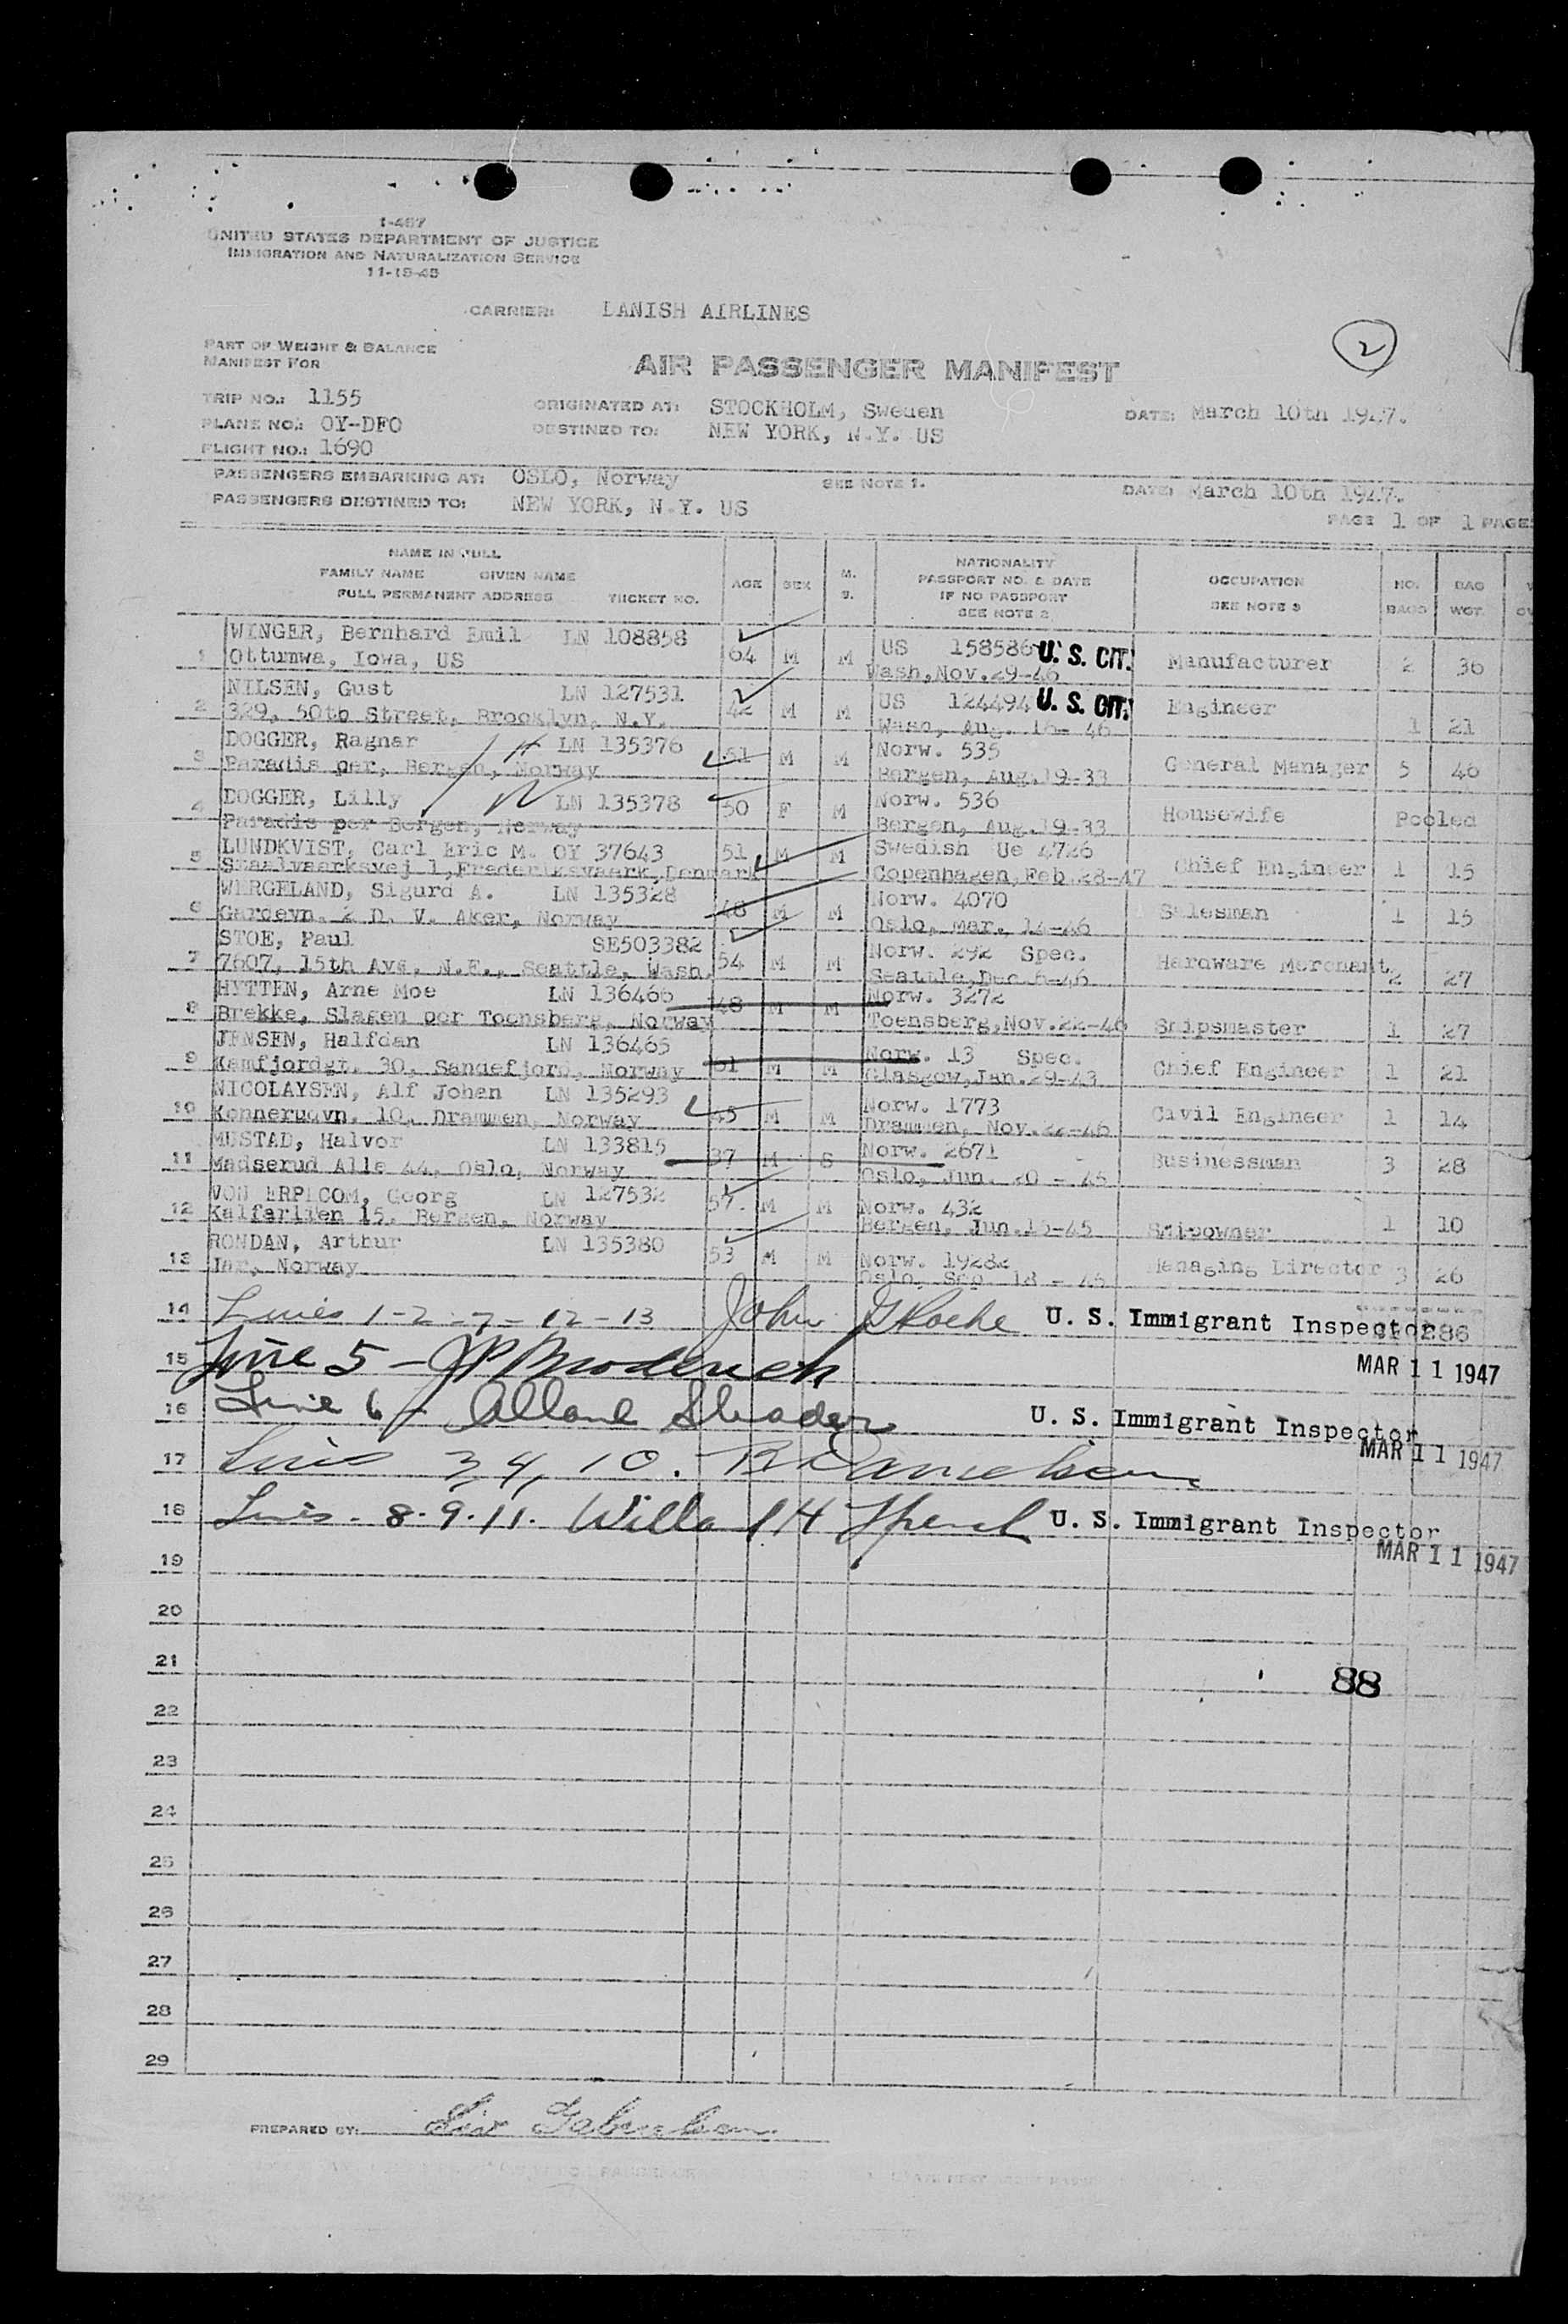 I-467
UNITED STATES DEPARTMENT OF JUSTICE
IMMIGRATION AND NATURALIZATION SERVICE
11-18-45
CARRIER: DANISH AIRLINES
2
PART OF WEIGHT & BALANCE
MANIFEST FOR
AIR PASSENGER MANIFEST
TRIP NO.: 1155
ORIGINATED AT: STOCKHOLM, Sweden
DATE: March 10th 1947.
PLANE NO.: OY-DFO
DESTINED TO: NEW YORK, N.Y. US
FLIGHT NO.: 1690
PASSENGERS EMBARKING AT: OSLO, Norway SEE NOTE 1. DATE: March 10th 1947.
PASSENGERS DESTINED TO: NEW YORK, N.Y. US
PAGE 1 OF 1 PAGES
NAME IN FULL
FAMILY NAME GIVEN NAME
FULL PERMANENT ADDRESS TICKET NO.
AGE SEX M. S.
NATIONALITY
PASSPORT NO. & DATE
IF NO PASSPORT
SEE NOTE 2
OCCUPATION
SEE NOTE 3
NO. BAGS
BAG WGT.
WINGER, Bernhard Emil LN 108858 US 158586 U. S. CIT.
1 Ottumwa, Iowa, US 64 M M Wash, Nov.29-46 Manufacturer 2 36
NILSEN, Gust LN 127531 US 124494 U. S. CIT.
2 329, 50th Street, Brooklyn, N.Y. 42 M M Wash, Aug. 16- 46 Engineer 1 21
DOGGER, Ragnar LN 135376 Norw. 535
3 Paradis per, Bergen, Norway 51 M M Bergen, Aug.19-33 General Manager 5 46
DOGGER, Lilly LN 135378 Norw. 536
4 Paradis per Bergen, Norway 50 F M Bergen, Aug.19-33 Housewife Pooled
LUNDKVIST, Carl Eric M. OY 37643 Swedish Ue 4726
5 Staalvaerksvej 1, Frederiksvaerk, Denmark 51 M M Copenhagen, Feb.28-47 Chief Engineer 1 15
WERGELAND, Sigurd A. LN 135328 Norw. 4070
6 2 D. V. Aker, Norway 48 M M Oslo, Mar. 14-46 Salesman 1 15
STOE, Paul SE503382 Norw. 292 Spec.
7 7607, 15th Ave. N.E., Seattle, Wash. 54 M M Seattle, Dec.6-46 Hardware Merchant 2 27
HYTTEN, Arne Moe LN 136466 Norw. 3272
8 Brekke, Slagen per Toensberg, Norway 48 M M Toensberg, Nov.22-46 Shipsmaster 1 27
JENSEN, Halfdan LN 136465 Norw. 13 Spec.
9 Kamfjordgt. 30, Sandefjord, Norway 61 M M Glasgow, Jan.29-43 Chief Engineer 1 21
NICOLAYSEN, Alf Johan LN 135293 Norw. 1773
10 Konnerudvn. 10, Drammen, Norway 45 M M Drammen, Nov.22-46 Civil Engineer 1 14
MUSTAD, Halvor LN 133815 Norw. 2671
11 Madserud Alle 44, Oslo, Norway 37 M S Oslo, Jun. 20 - 45 Businessman 3 28
VON ERPECOM, Georg LN 127532
12 Kalfarlien 15, Bergen, Norway 57. M M Norw. 432 Bergen, Jun.15-45 Shipowner 1 10
RONDAN, Arthur LN 135380
13 Jar, Norway 53 M M Norw. 19282 Oslo, Sep. 18 - 45 Managing Director 3 26
14 Lines 1-2-7-12-13 John G Roche U. S. Immigrant Inspector
15 Line 5 - JP Broderick MAR 11 1947
16 Line 6 - U. S. Immigrant Inspector
MAR 11 1947
17 Lines 3, 4, 10. Danielsen
18 Lines - 8-9-11. Willard H U. S. Immigrant Inspector
MAR 11 1947
19
20
21
88
22
23
24
25
26
27
28
29
PREPARED BY: